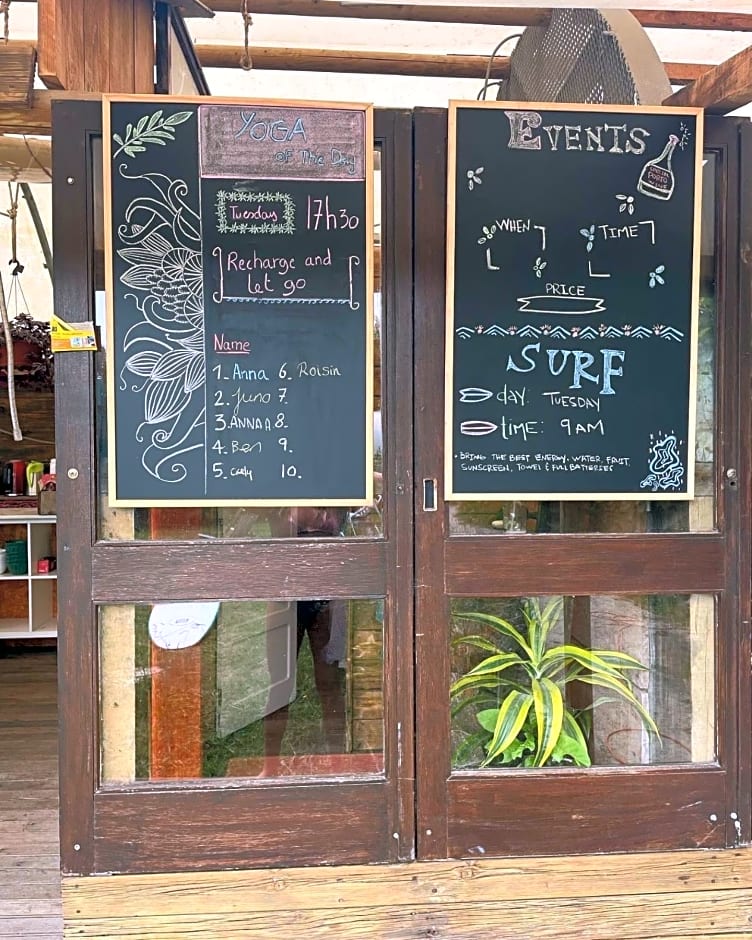 YOGA
OF The Day
Tuesday 17h30
Recharge and
let go
Name
1_ Anna 6_ Roisin
2_ Juno 7_
3_ ANNA A 8_
4_ Ben 9_
5_ 10_
EVENTS
PORTO
WHEN TIME
PRICE
SURF
day: TUESDAY
time: 9 AM
• BRING THE BEST ENERGY, WATER, FRUIT,
SUNSCREEN, TOWEL & FULL BATTERIES